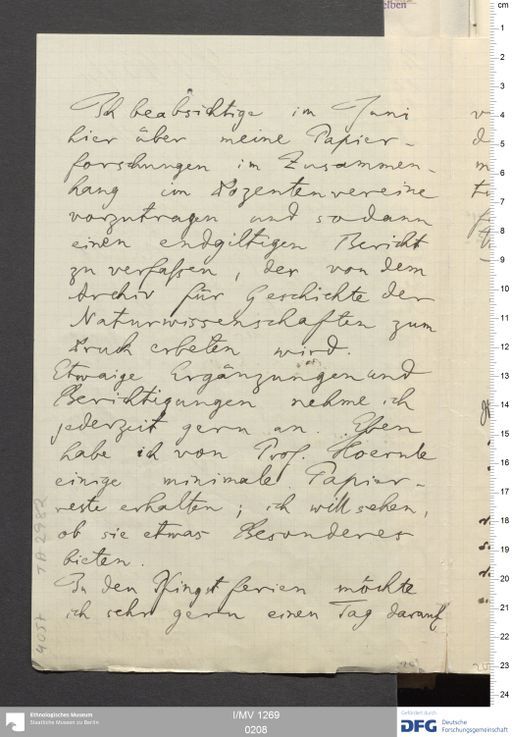 elben
Ich beabsichtige im Juni
hier über meine Papier-
forschungen im Zusammen-
hang im Dozentenvereine
vorzutragen und sodann
einen endgiltigen Bericht
zu verfaßen, der von dem
Archiv für Geschichte der
Naturwissenschaften zum
Druck erbeten wird.
Etwaige Ergänzungen und
Berichtigungen nehme ich
jederzeit gern an. Eben
habe ich von Prof. Hoernle
einige minimale Papier-
reste erhalten; ich will sehen,
ob sie etwas Besonderes
bieten.
In den Pfingstferien möchte
ich sehr gern einen Tag darauf
TA 2982
cm
1
2
3
4
5
6
7
8
9
10
11
12
13
14
15
16
17
18
19
20
21
22
23
24
Ethnologisches Museum
Staatliche Museen zu Berlin
I/MV 1269
0208
Gefördert durch
DFG Deutsche
Forschungsgemeinschaft